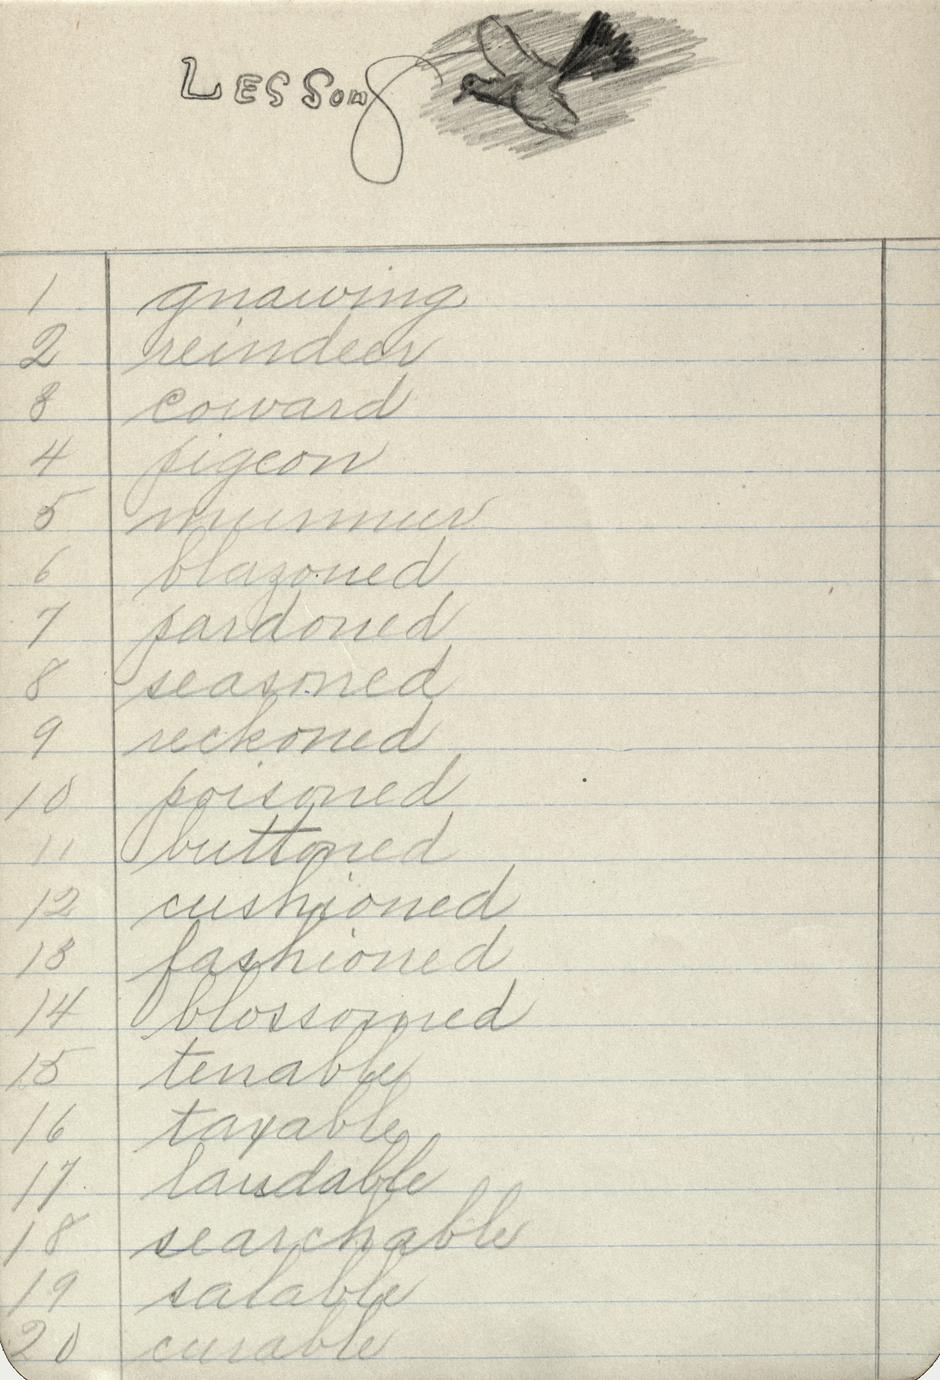 Lesson 8
1 gnawing
2 reindeer
3 coward
4 pigeon
5 murmur
6 blazoned
7 pardoned
8 seasoned
9 reckoned
10 poisoned
11 buttoned
12 cushioned
13 fashioned
14 blossomed
15 tenable
16 taxable
17 laudable
18 searchable
19 salable
20 curable